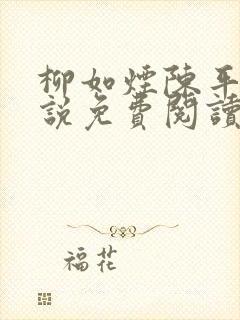 柳如煙陳平
說免費閱讀
福花